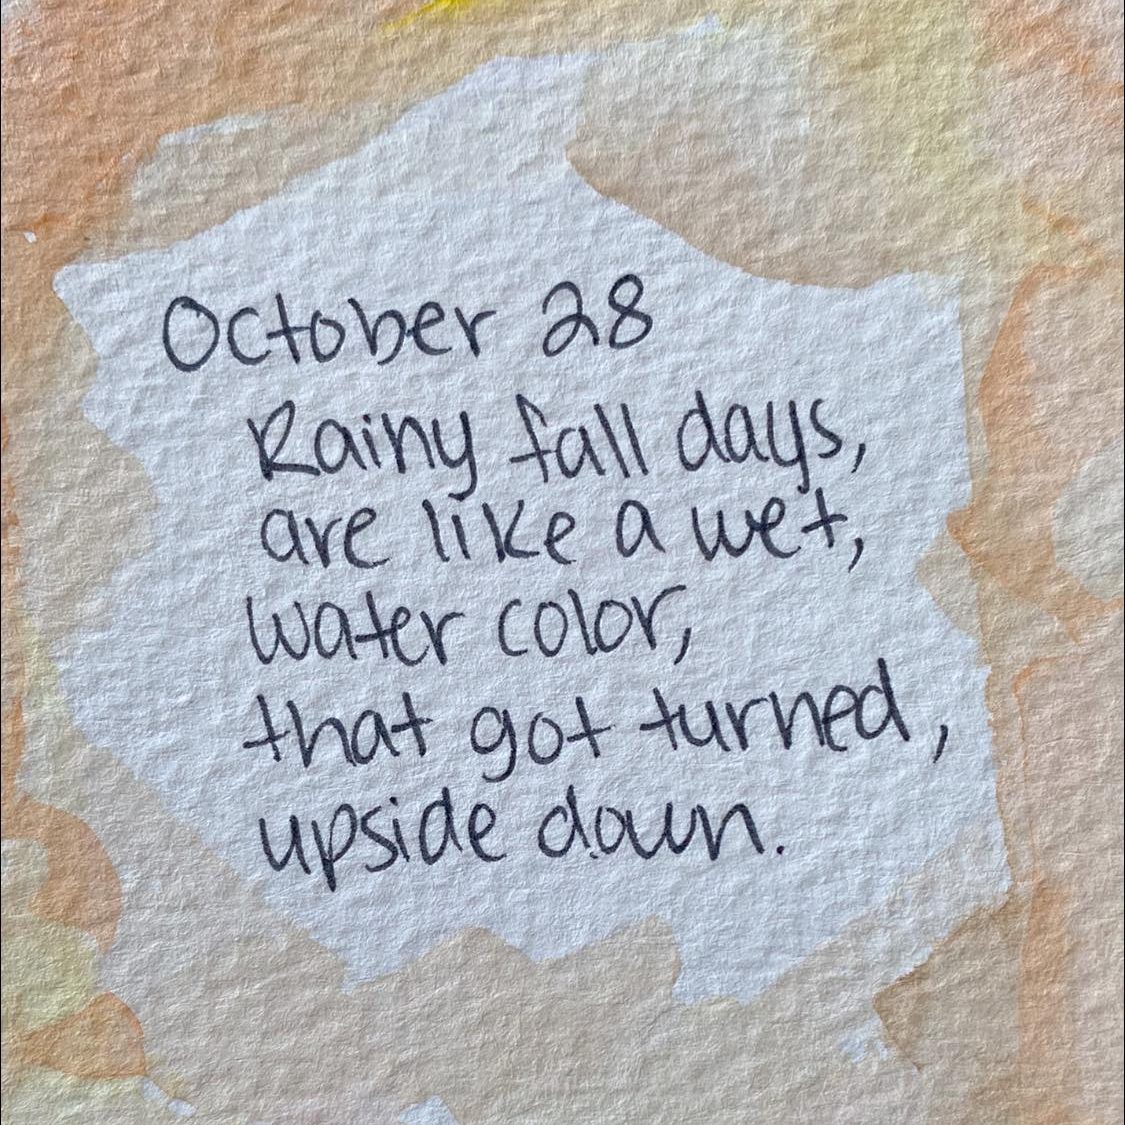 October 28
Rainy fall days,
are like a wet,
water color,
that got turned,
upside down.